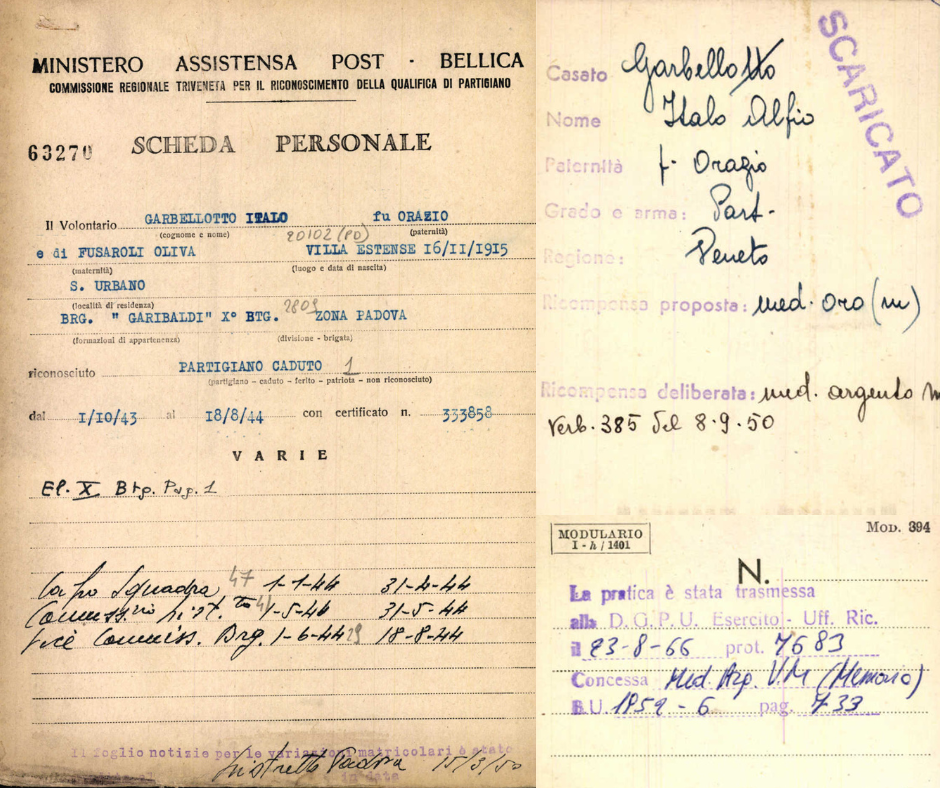 MINISTERO ASSISTENSA POST - BELLICA
COMMISSIONE REGIONALE TRIVENETA PER IL RICONOSCIMENTO DELLA QUALIFICA DI PARTIGIANO
63270 SCHEDA PERSONALE
Il Volontario GARBELLOTTO ITALO fu ORAZIO
(cognome e nome) 20102 (PD) (paternità)
e di FUSAROLI OLIVA VILLA ESTENSE 16/11/1915
(maternità) (luogo e data di nascita)
S. URBANO
(località di residenza)
BRG. " GARIBALDI" X° BTG. 2809 ZONA PADOVA
(formazioni di appartenenza) (divisione - brigata)
riconosciuto PARTIGIANO CADUTO 1
(partigiano - caduto - ferito - patriota - non riconosciuto)
dal 1/10/43 al 18/8/44 con certificato n. 333858
VARIE
El. X Btg. Pag. 1
Capo Squadra 47 1-1-44 31-4-44
1-5-44 31-5-44
Vice Commiss. Brg. 1-6-44 29 18-8-44
Il foglio notizie per le variazioni matricolari è stato
in data
Distretto Padova 15/3/50
SCARICATO
Casato Garbellotto
Nome Italo Alfio
Paternità f. Orazio
Grado e arma: Part.
Regione: Veneto
Ricompensa proposta: med. oro (m)
Ricompensa deliberata: med. argento m
Verb. 385 del 8.9.50
MODULARIO
I - h / 1401
MOD. 394
N.
La pratica è stata trasmessa
alla D.G.P.U. Esercito - Uff. Ric.
il 23-8-66 prot. 7683
Concessa Med Arg. V.M (Memoria)
B.U. 1959 - 6 pag. 733